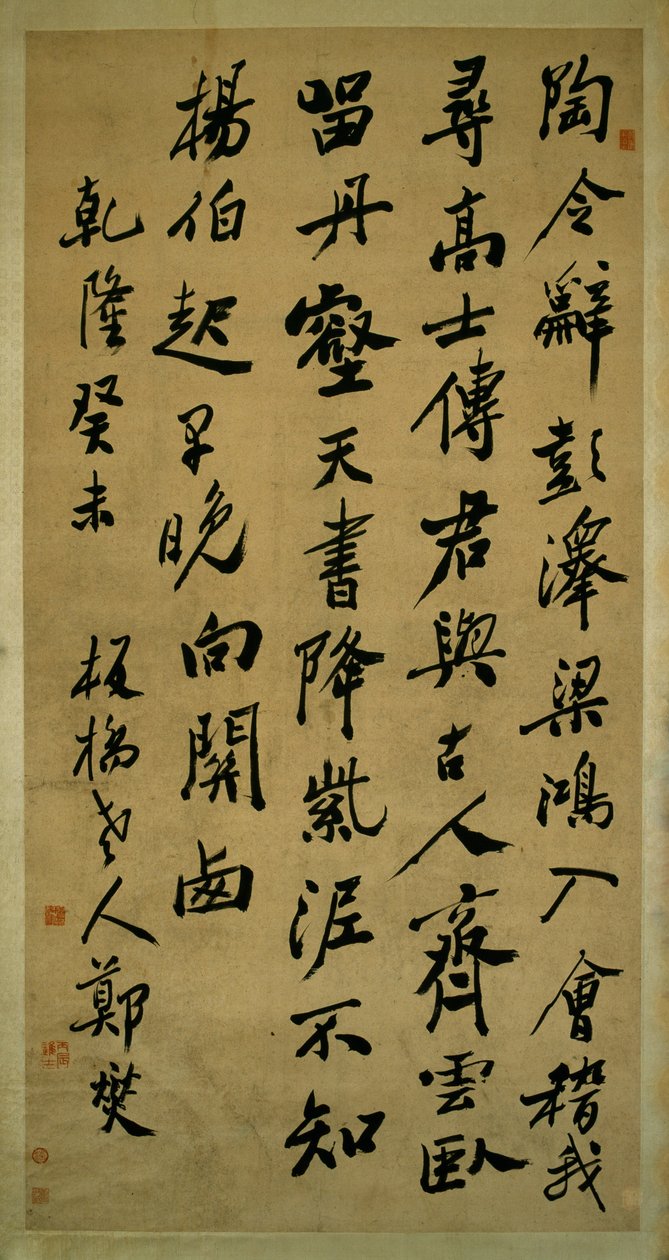 陶令辭彭澤梁鴻入會稽我
尋高士傳君與古人齊雲臥
留丹壑天書降紫泥不知
楊伯起早晚向關卥
乾隆癸未 板橋老人鄭燮
丙辰進士